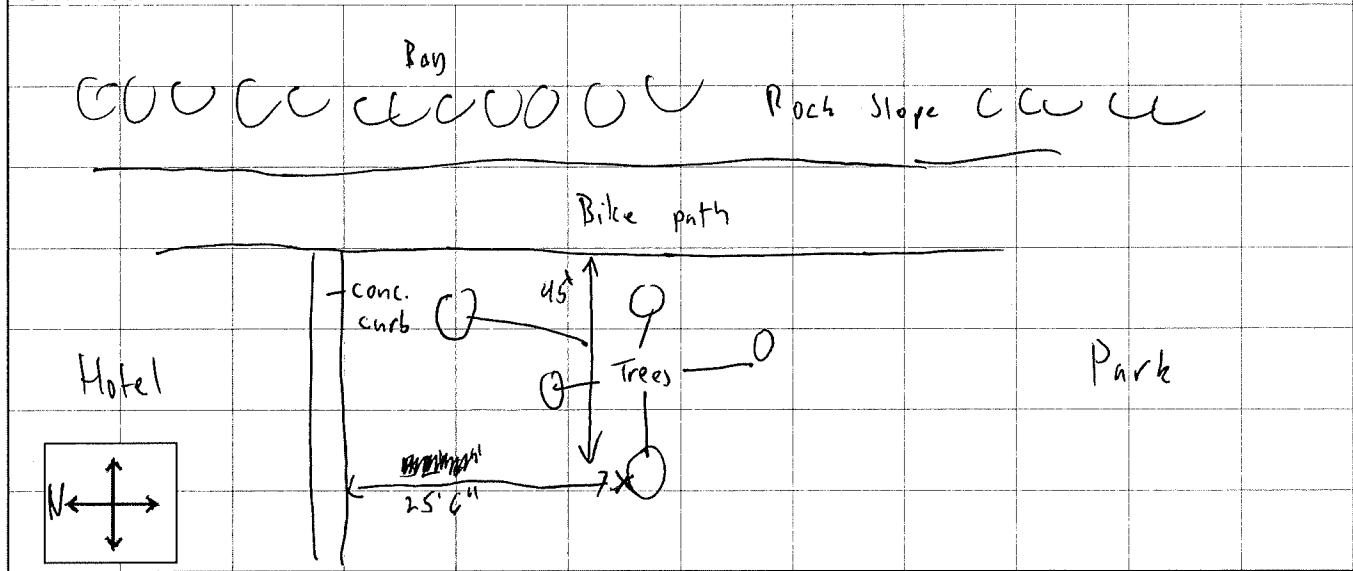 Bay
Rock Slope
Bike path
conc.
curb
45'
Trees
Hotel
Park
25' 6"
X
N